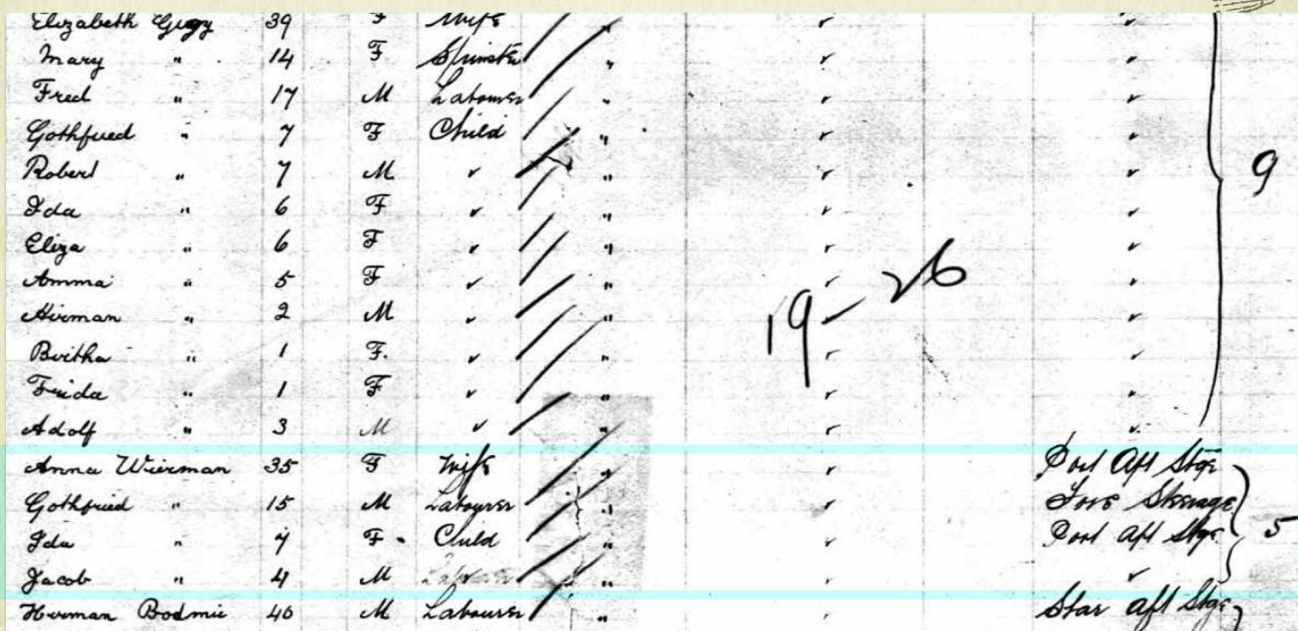 Elizabeth Gugy 39 F Wife " ✓ ✓
Mary " 14 F Spinster " ✓ ✓
Fred " 17 M Labourer " ✓ ✓
Gothfried " 7 F Child " ✓ ✓
Robert " 7 M ✓ " ✓ ✓ 9
Ida " 6 F ✓ " ✓ ✓
Eliza " 6 F ✓ " ✓ ✓
Amma " 5 F ✓ " ✓ ✓
Hirman " 2 M ✓ " 19 - 26 ✓
Bertha " 1 F. ✓ " ✓ ✓
Frida " 1 F ✓ " ✓ ✓
Adolf " 3 M ✓ " ✓ ✓
Anna Wierman 35 F Wife " ✓ Port Aft Stge
Gothfried " 15 M Labourer " ✓ Fore Steerage
Ida " 7 F Child " ✓ Port Aft Stge 5
Jacob " 4 M " ✓ ✓
Herman Bodmic 40 M Labourer " ✓ Star Aft Stge